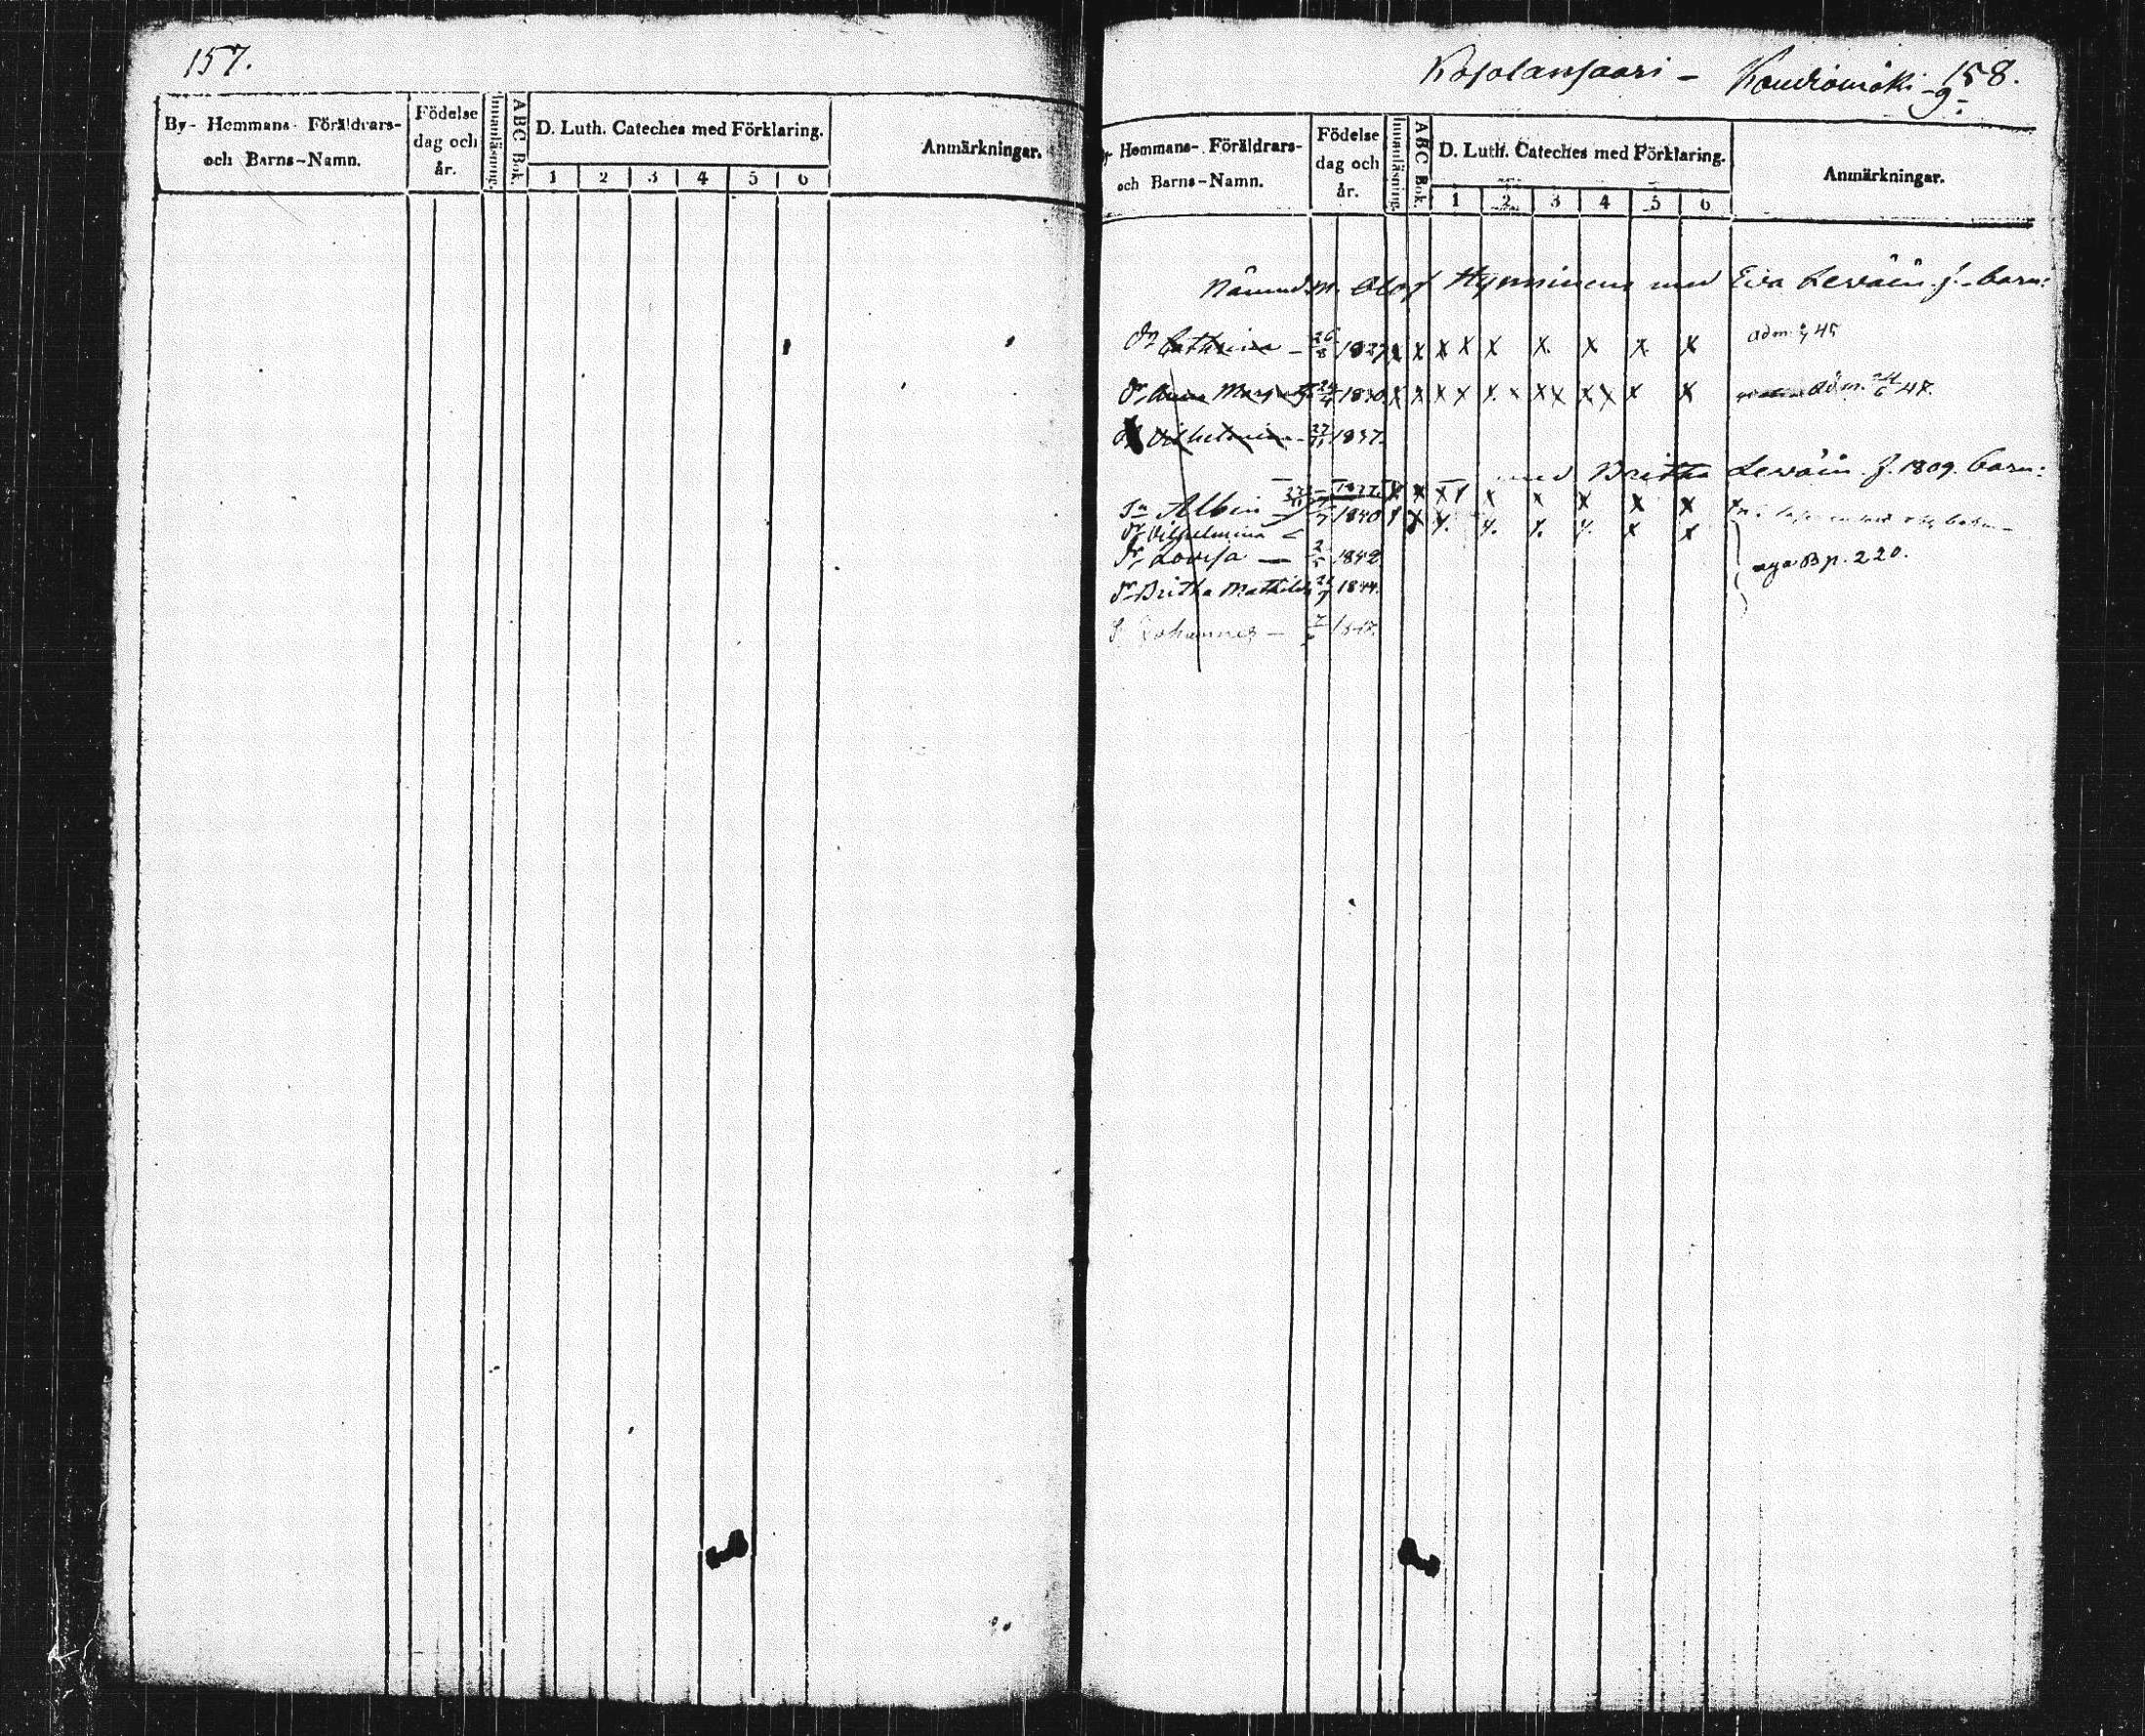 157.
By- Hemmans- Föräldrars-
och Barns-Namn.
Födelse
dag och
år.
Innanläsning.
ABC Bok.
D. Luth. Cateches med Förklaring.
1 2 3 4 5 6
Anmärkningar.
158.
9
Hemmans- Föräldrars-
och Barns-Namn.
Födelse
dag och
år.
Innanläsning.
ABC Bok.
D. Luth. Cateches med Förklaring.
1 2 3 4 5 6
Anmärkningar.
Nämndm. Olof Hynninens med Eva Leväin f. barn:
Dr Cathrina – 1827 x x x x x x x x x x adm. 45
Dr Anna 1830 x x x x x x x x x x x x adm. 24/6 47.
Vilhelmina 1837.
med Britha Leväin f. 1809. barn:
Sn Albin x x x x x x x x x
Dr Vilhelmina 1840 x x x x x x x x
Dr Lovisa — 2 1842
Dr Britha Mathilda 1844.
nya B p. 220.
S. Johannes –